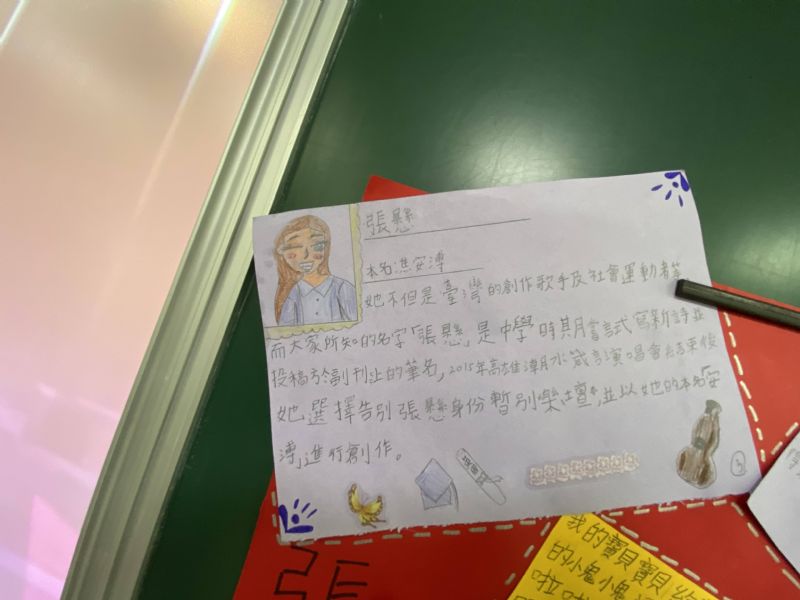 張懸
本名焦安溥
她不但是臺灣的創作歌手及社會運動者等,
而大家所知的名字「張懸」是中學時期嘗試寫新詩並
投稿於副刊上的筆名,2015年高雄潮水箴言演唱會結束後
她選擇告別張懸身份暫別樂壇,並以她的本名「安
溥」進行創作。
3
張
我的寶貝寶貝給
的小鬼小鬼
啦